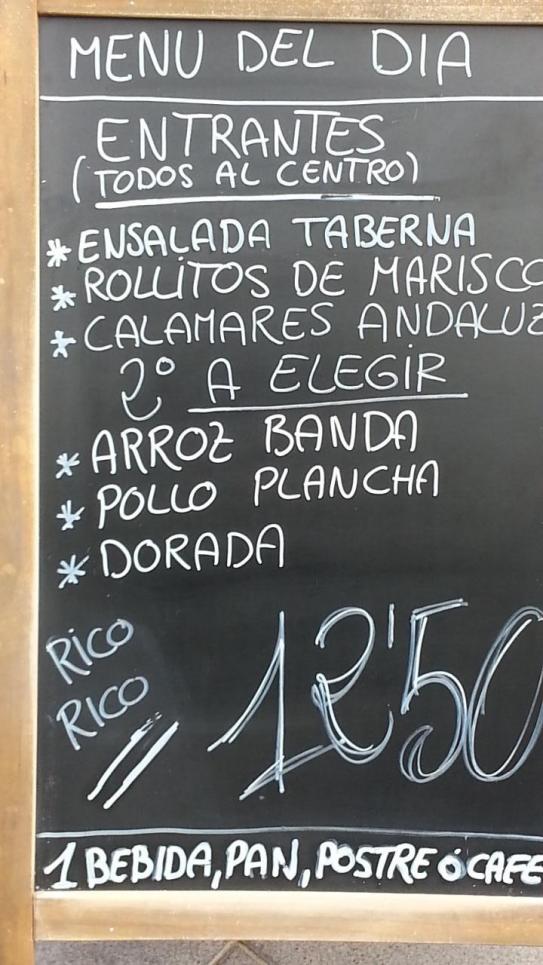 MENU DEL DIA
ENTRANTES
(TODOS AL CENTRO)
* ENSALADA TABERNA
* ROLLITOS DE MARISCO
* CALAMARES ANDALUZ
2º A ELEGIR
* ARROZ BANDA
* POLLO PLANCHA
* DORADA
RICO
RICO
12'50
1 BEBIDA, PAN, POSTRE Ó CAFE